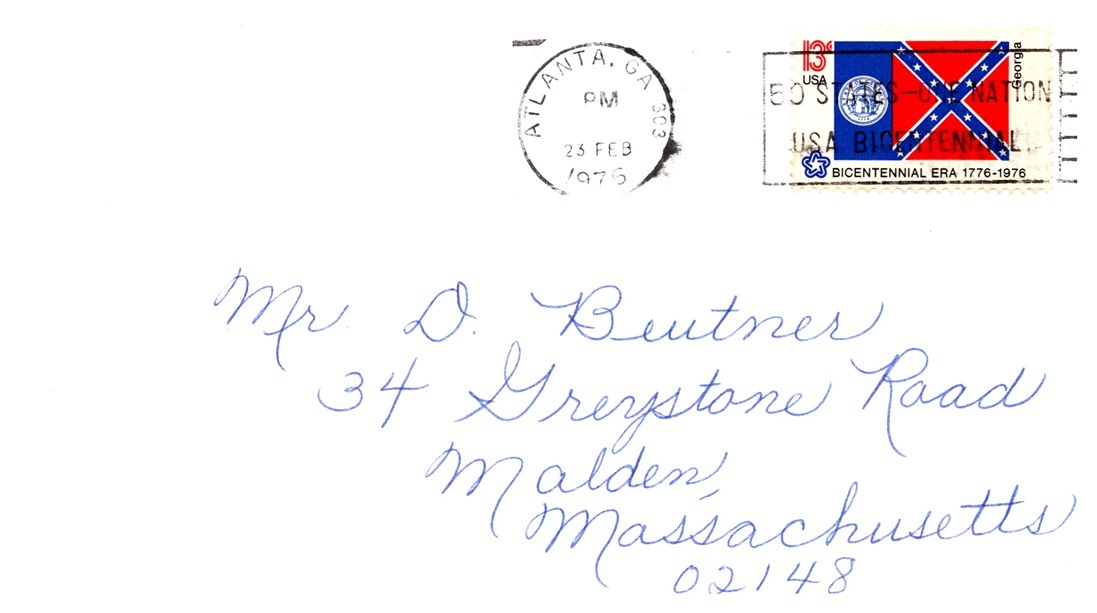 ATLANTA, GA 303
PM
23 FEB
1976
13¢
USA
Georgia
50 STATES-ONE NATION
USA BICENTENNIAL
BICENTENNIAL ERA 1776-1976
Mr D. Beutner
34 Greystone Road
Malden,
Massachusetts
02148